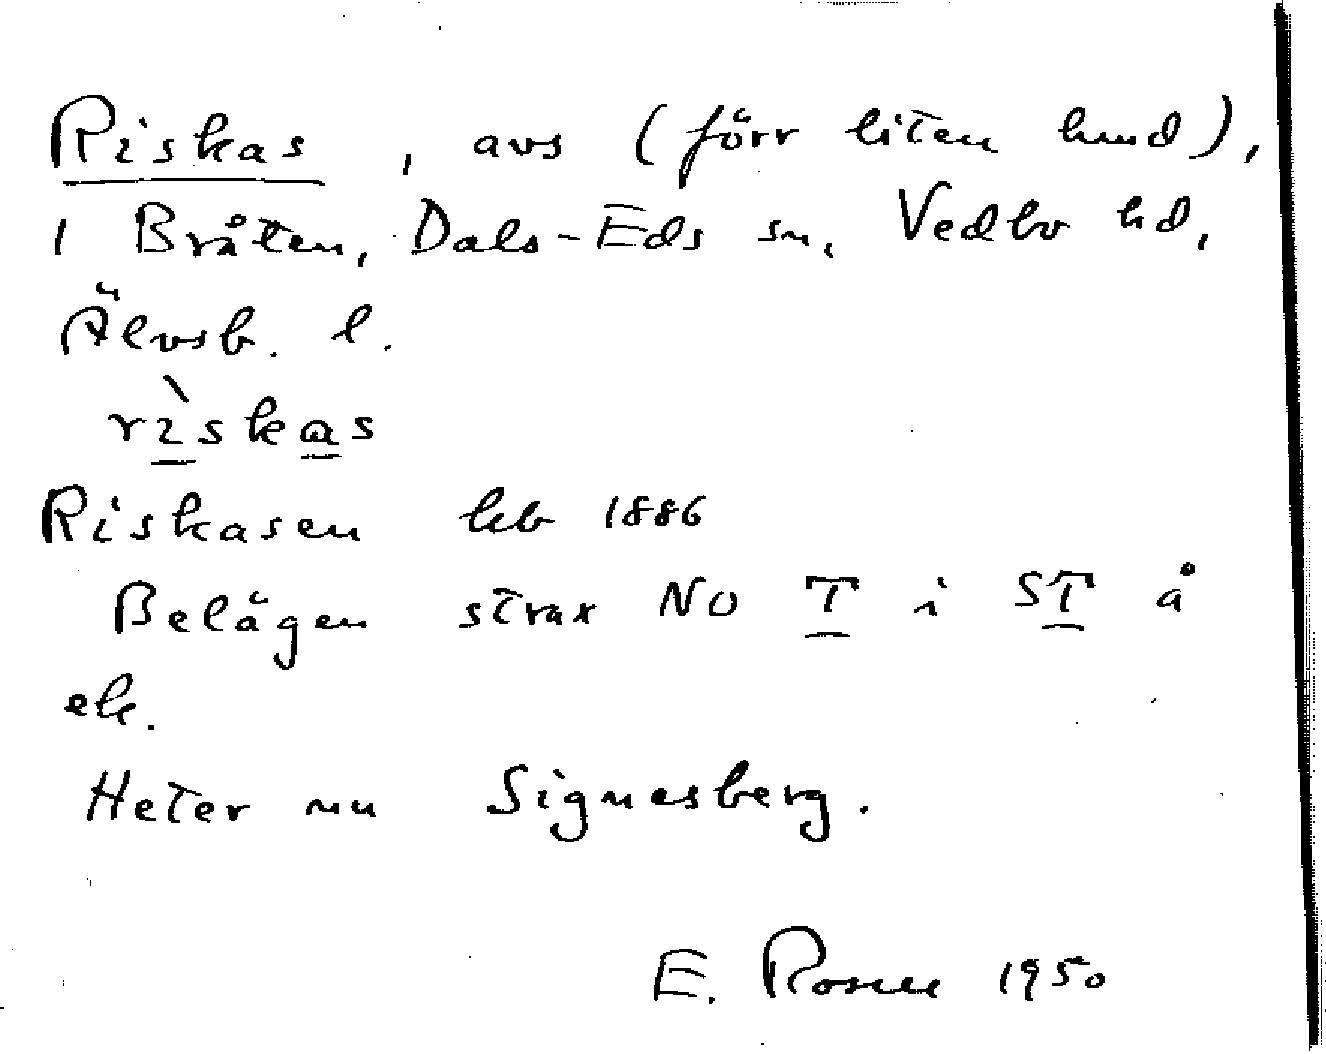 Riskas, avs (förr liten lmd),
i Bråten, Dals-Eds sn, Vedbo hd,
Älvsb. l.
rìskas
Riskasen hb 1886
Belägen strax NO T i ST å
ek.
Heter nu Signesberg.
E. Rosell 1950